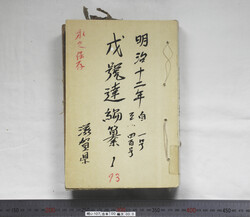 明治十二年 自一号
至一四百号
戊號達編纂 1
滋賀県
永久保存
93